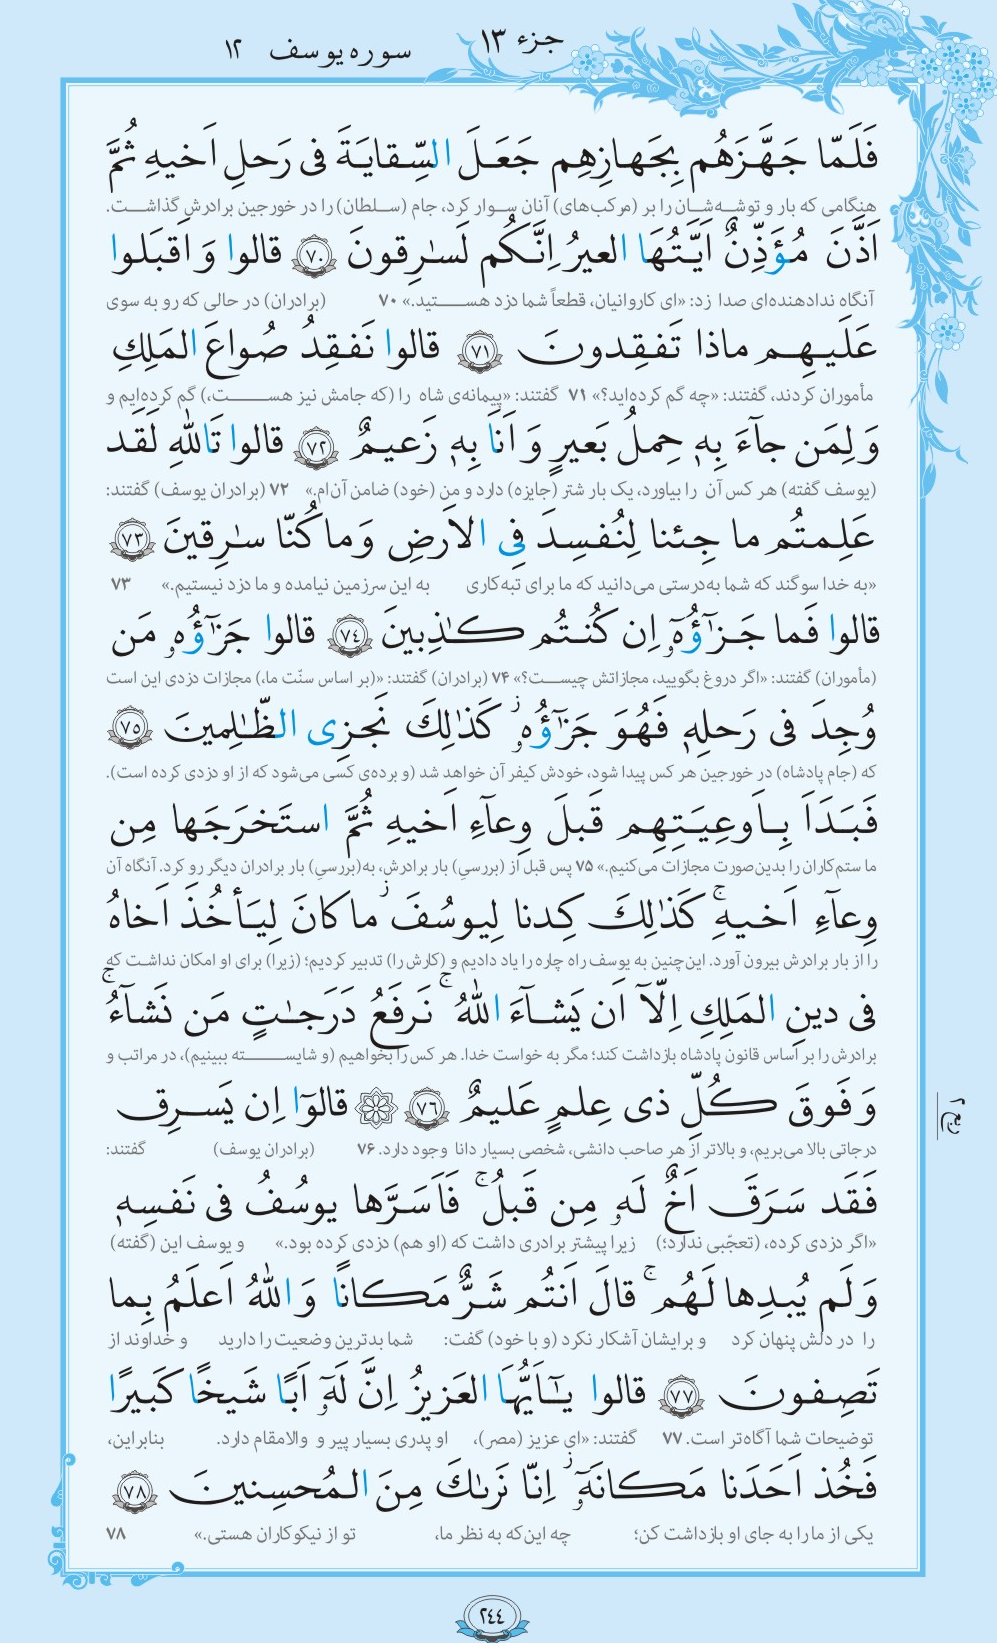 جزء ۱۳
سوره یوسف ۱۲
فَلَمّا جَهَّزَهُم بِجَهازِهِم جَعَلَ السِّقایَةَ فی رَحلِ اَخیهِ ثُمَّ
هنگامی که بار و توشه‌شان را بر (مرکب‌های) آنان سوار کرد، جام (سلطان) را در خورجین برادرش گذاشت.
اَذَّنَ مُؤَذِّنٌ اَیَّتُهَا العیرُ اِنَّکُم لَسٰرِقونَ ﴿۷۰﴾ قالوا وَ اَقبَلوا
آنگاه ندادهنده‌ای صدا زد: «ای کاروانیان، قطعاً شما دزد هستید.» ۷۰ (برادران) در حالی که رو به سوی
عَلَیهِم ماذا تَفقِدونَ ﴿۷۱﴾ قالوا نَفقِدُ صُواعَ المَلِکِ
مأموران کردند، گفتند: «چه گم کرده‌اید؟» ۷۱ گفتند: «پیمانه‌ی شاه را (که جامش نیز هست،) گم کرده‌ایم و
وَ لِمَن جآءَ بِهٖ حِملُ بَعیرٍ وَ اَنَا بِهٖ زَعیمٌ ﴿۷۲﴾ قالوا تَاللّٰهِ لَقَد
(یوسف گفته) هر کس آن را بیاورد، یک بار شتر (جایزه) دارد و من (خود) ضامن آن‌ام.» ۷۲ (برادران یوسف) گفتند:
عَلِمتُم ما جِئنا لِنُفسِدَ فِی الاَرضِ وَ ما کُنّا سٰرِقینَ ﴿۷۳﴾
«به خدا سوگند که شما به‌درستی می‌دانید که ما برای تبه‌کاری به این سرزمین نیامده و ما دزد نیستیم.» ۷۳
قالوا فَما جَزٰٓؤُهٗٓ اِن کُنتُم کٰذِبینَ ﴿۷۴﴾ قالوا جَزٰٓؤُهٗ مَن
(مأموران) گفتند: «اگر دروغ بگویید، مجازاتش چیست؟» ۷۴ (برادران) گفتند: «(بر اساس سنّت ما،) مجازات دزدی این است
وُجِدَ فی رَحلِهٖ فَهُوَ جَزٰٓؤُهٗ ز کَذٰلِکَ نَجزِی الظّٰلِمینَ ﴿۷۵﴾
که (جام پادشاه) در خورجین هر کس پیدا شود، خودش کیفر آن خواهد شد (و برده‌ی کسی می‌شود که از او دزدی کرده است).
فَبَدَاَ بِاَوعِیَتِهِم قَبلَ وِعآءِ اَخیهِ ثُمَّ استَخرَجَها مِن
ما ستم‌کاران را بدین‌صورت مجازات می‌کنیم.» ۷۵ پس قبل از (بررسیِ) بار برادرش، به(بررسیِ) بار برادران دیگر رو کرد. آنگاه آن
وِعآءِ اَخیهِ ۚ کَذٰلِکَ کِدنا لِیوسُفَ ز ما کانَ لِیَأخُذَ اَخاهُ
را از بار برادرش بیرون آورد. این‌چنین به یوسف راه چاره را یاد دادیم و (کارش را) تدبیر کردیم؛ (زیرا) برای او امکان نداشت که
فی دینِ المَلِکِ اِلّآ اَن یَشآءَ اللّٰهُ ۚ نَرفَعُ دَرَجٰتٍ مَن نَشآءُ ۚ
برادرش را بر اساس قانون پادشاه بازداشت کند؛ مگر به خواست خدا. هر کس را بخواهیم (و شایسته ببینیم)، در مراتب و
وَ فَوقَ کُلِّ ذی عِلمٍ عَلیمٌ ﴿۷۶﴾ قالوٓا اِن یَسرِق
درجاتی بالا می‌بریم، و بالاتر از هر صاحب دانشی، شخصی بسیار دانا وجود دارد. ۷۶ (برادران یوسف) گفتند:
ربع ۲
فَقَد سَرَقَ اَخٌ لَهٗ مِن قَبلُ ۚ فَاَسَرَّها یوسُفُ فی نَفسِهٖ
«اگر دزدی کرده، (تعجّبی ندارد؛) زیرا پیشتر برادری داشت که (او هم) دزدی کرده بود.» و یوسف این (گفته)
وَ لَم یُبدِها لَهُم ۚ قالَ اَنتُم شَرٌّ مَکانًا وَ اللّٰهُ اَعلَمُ بِما
را در دلش پنهان کرد و برایشان آشکار نکرد (و با خود) گفت: شما بدترین وضعیت را دارید و خداوند از
تَصِفونَ ﴿۷۷﴾ قالوا یٰٓاَیُّهَا العَزیزُ اِنَّ لَهٗٓ اَبًا شَیخًا کَبیرًا
توضیحات شما آگاه‌تر است. ۷۷ گفتند: «ای عزیز (مصر)، او پدری بسیار پیر و والامقام دارد. بنابراین،
فَخُذ اَحَدَنا مَکانَهٗٓ ز اِنّا نَرٰىکَ مِنَ المُحسِنینَ ﴿۷۸﴾
یکی از ما را به جای او بازداشت کن؛ چه این‌که به نظر ما، تو از نیکوکاران هستی.» ۷۸
۲۴۴